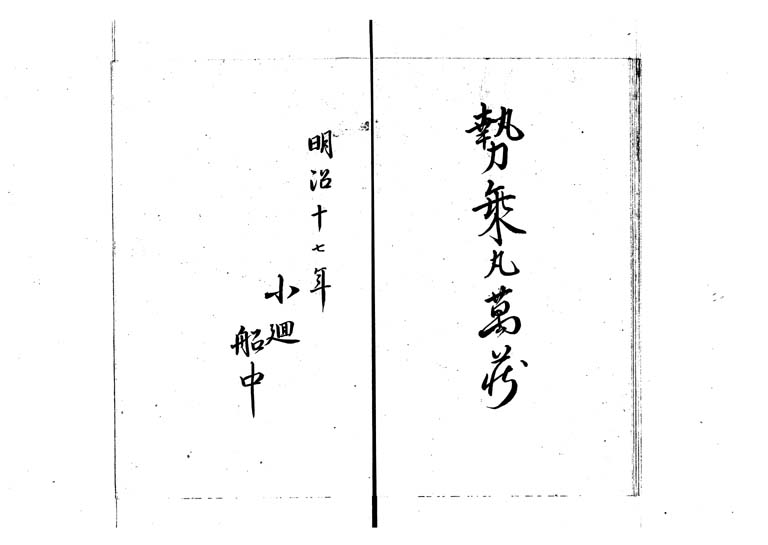 勢乗丸萬蔵
明治十七年
小廻
船中